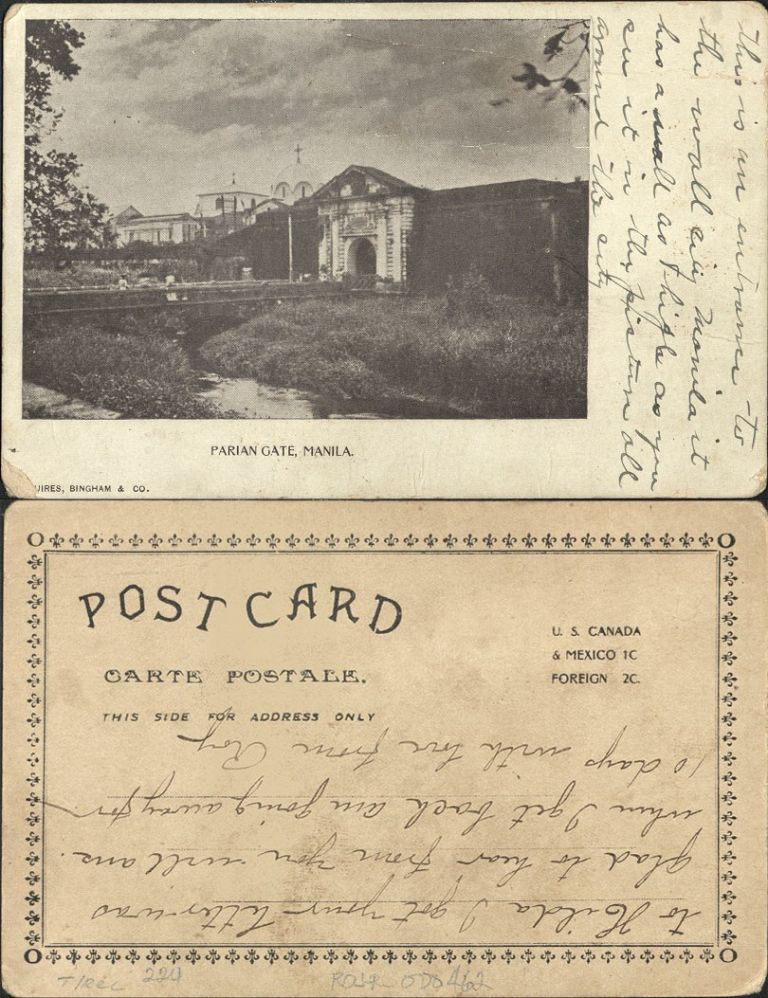 This is an entrance to
the wall city Manila it
has a wall as high as you
see it in this picture all
around the city
PARIAN GATE, MANILA.
UIRES, BINGHAM & CO.
POST CARD
CARTE POSTALE.
THIS SIDE FOR ADDRESS ONLY
U. S. CANADA
& MEXICO 1C
FOREIGN 2C.
to Hilda I got your letter was
glad to hear from you will ans.
when I get back am going away for
10 days with love from Roy
224